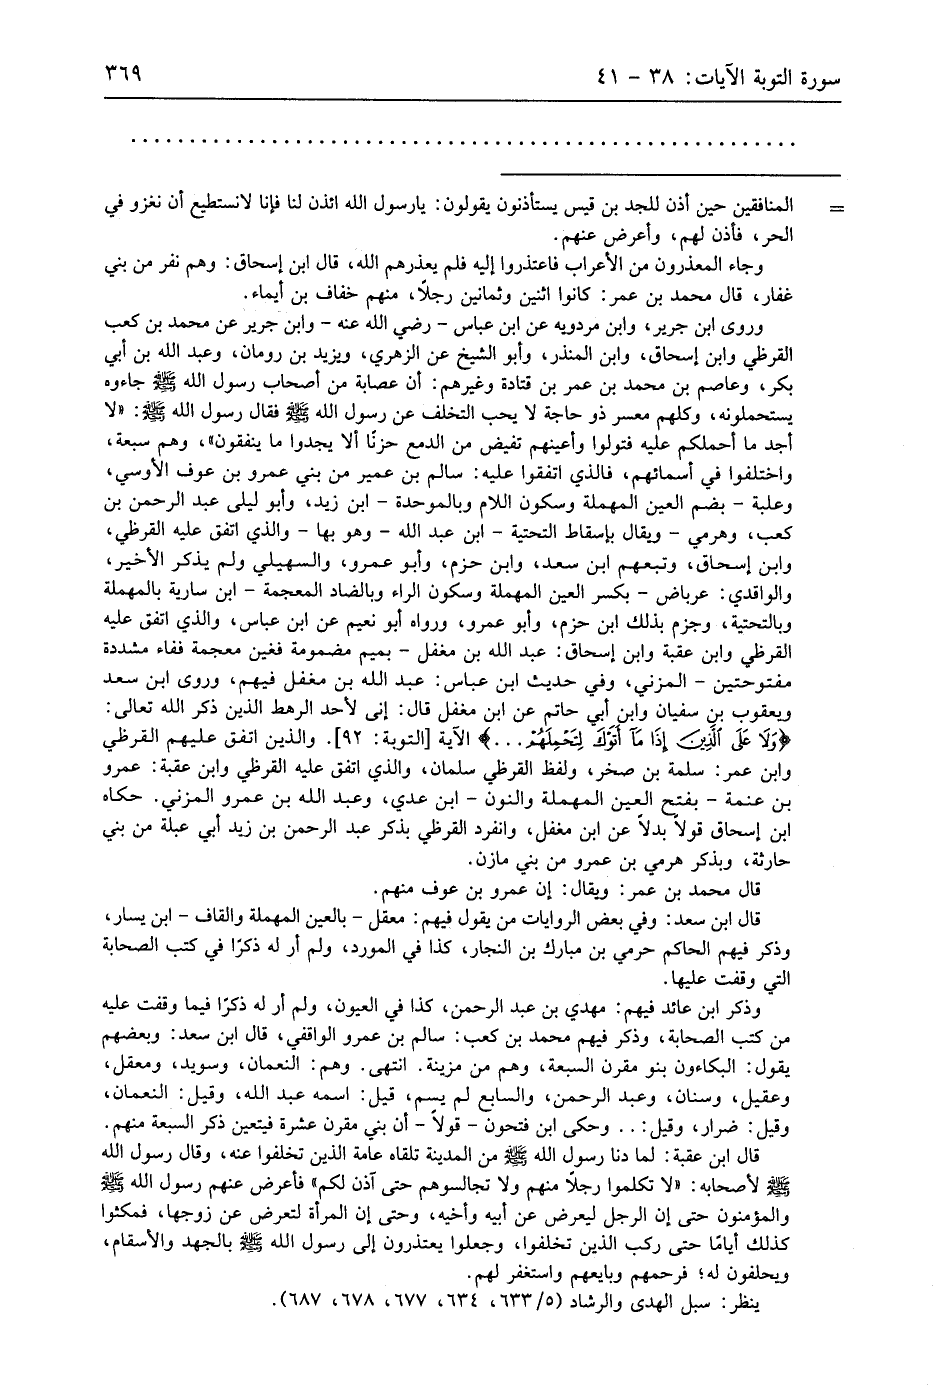 سورة التوبة الآيات: ٣٨ - ٤١
٣٦٩
......................................................
= المنافقين حين أذن للجد بن قيس يستأذنون يقولون: يارسول الله ائذن لنا فإنا لانستطيع أن نغزو في
الحر، فأذن لهم، وأعرض عنهم.
وجاء المعذرون من الأعراب فاعتذروا إليه فلم يعذرهم الله، قال ابن إسحاق: وهم نفر من بني
غفار، قال محمد بن عمر: كانوا اثنين وثمانين رجلًا، منهم خفاف بن أيماء.
وروى ابن جرير، وابن مردويه عن ابن عباس - رضي الله عنه - وابن جرير عن محمد بن كعب
القرظي وابن إسحاق، وابن المنذر، وأبو الشيخ عن الزهري، ويزيد بن رومان، وعبد الله بن أبي
بكر، وعاصم بن محمد بن عمر بن قتادة وغيرهم: أن عصابة من أصحاب رسول الله ﷺ جاءوه
يستحملونه، وكلهم معسر ذو حاجة لا يحب التخلف عن رسول الله ﷺ فقال رسول الله ﷺ: «لا
أجد ما أحملكم عليه فتولوا وأعينهم تفيض من الدمع حزنًا ألا يجدوا ما ينفقون»، وهم سبعة،
واختلفوا في أسمائهم، فالذي اتفقوا عليه: سالم بن عمير من بني عمرو بن عوف الأوسي،
وعلبة - بضم العين المهملة وسكون اللام وبالموحدة - ابن زيد، وأبو ليلى عبد الرحمن بن
كعب، وهرمي - ويقال بإسقاط التحتية - ابن عبد الله - وهو بها - والذي اتفق عليه القرظي،
وابن إسحاق، وتبعهم ابن سعد، وابن حزم، وأبو عمرو، والسهيلي ولم يذكر الأخير،
والواقدي: عرباض - بكسر العين المهملة وسكون الراء وبالضاد المعجمة - ابن سارية بالمهملة
وبالتحتية، وجزم بذلك ابن حزم، وأبو عمرو، ورواه أبو نعيم عن ابن عباس، والذي اتفق عليه
القرظي وابن عقبة وابن إسحاق: عبد الله بن مغفل - بميم مضمومة فغين معجمة ففاء مشددة
مفتوحتين - المزني، وفي حديث ابن عباس: عبد الله بن مغفل فيهم، وروى ابن سعد
ويعقوب بن سفيان وابن أبي حاتم عن ابن مغفل قال: إنى لأحد الرهط الذين ذكر الله تعالى:
﴿وَلَا عَلَى ٱلَّذِينَ إِذَا مَآ أَتَوۡكَ لِتَحۡمِلَهُمۡ...﴾ الآية [التوبة: ٩٢]. والذين اتفق عليهم القرظي
وابن عمر: سلمة بن صخر، ولفظ القرظي سلمان، والذي اتفق عليه القرظي وابن عقبة: عمرو
بن عنمة - بفتح العين المهملة والنون - ابن عدي، وعبد الله بن عمرو المزني. حكاه
ابن إسحاق قولاً بدلاً عن ابن مغفل، وانفرد القرظي بذكر عبد الرحمن بن زيد أبي عبلة من بني
حارثة، وبذكر هرمي بن عمرو من بني مازن.
قال محمد بن عمر: ويقال: إن عمرو بن عوف منهم.
قال ابن سعد: وفي بعض الروايات من يقول فيهم: معقل - بالعين المهملة والقاف - ابن يسار،
وذكر فيهم الحاكم حرمي بن مبارك بن النجار، كذا في المورد، ولم أر له ذكرًا في كتب الصحابة
التي وقفت عليها.
وذكر ابن عائد فيهم: مهدي بن عبد الرحمن، كذا في العيون، ولم أر له ذكرًا فيما وقفت عليه
من كتب الصحابة، وذكر فيهم محمد بن كعب: سالم بن عمرو الواقفي، قال ابن سعد: وبعضهم
يقول: البكاءون بنو مقرن السبعة، وهم من مزينة. انتهى. وهم: النعمان، وسويد، ومعقل،
وعقيل، وسنان، وعبد الرحمن، والسابع لم يسم، قيل: اسمه عبد الله، وقيل: النعمان،
وقيل: ضرار، وقيل: .. وحكى ابن فتحون - قولاً - أن بني مقرن عشرة فيتعين ذكر السبعة منهم.
قال ابن عقبة: لما دنا رسول الله ﷺ من المدينة تلقاه عامة الذين تخلفوا عنه، وقال رسول الله
ﷺ لأصحابه: «لا تكلموا رجلًا منهم ولا تجالسوهم حتى آذن لكم» فأعرض عنهم رسول الله ﷺ
والمؤمنون حتى إن الرجل ليعرض عن أبيه وأخيه، وحتى إن المرأة لتعرض عن زوجها، فمكثوا
كذلك أيامًا حتى ركب الذين تخلفوا، وجعلوا يعتذرون إلى رسول الله ﷺ بالجهد والأسقام،
ويحلفون له؛ فرحمهم وبايعهم واستغفر لهم.
ينظر: سبل الهدى والرشاد (٥/٦٣٣، ٦٣٤، ٦٧٧، ٦٧٨، ٦٨٧).